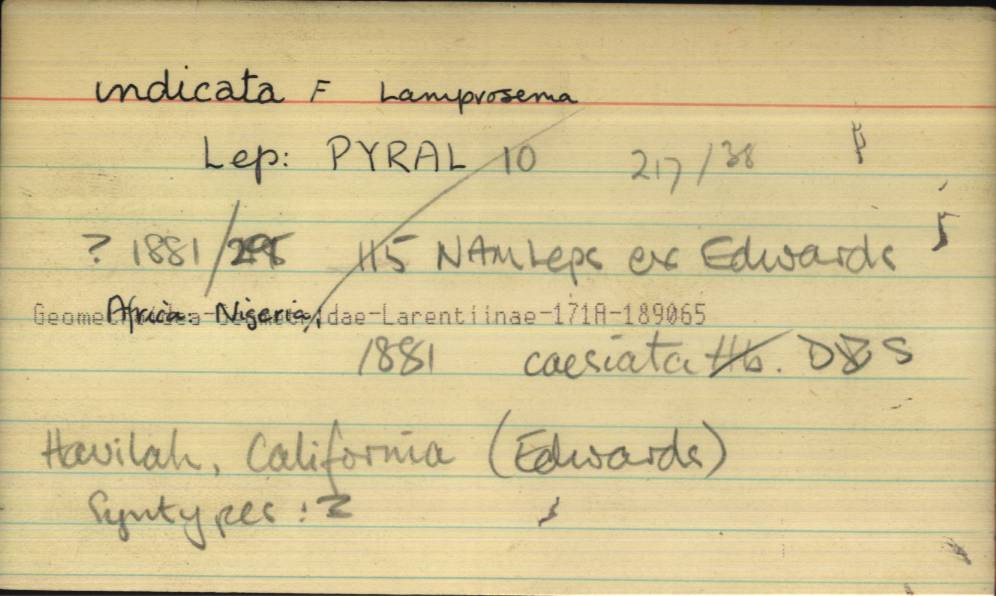 indicata F Lamprosema
Lep: PYRAL 10 217/38
? 1881/ 115 NAmLeps ex Edwards
Africa: Nigeria,
Geometroidea-Geometridae-Larentiinae-171A-189065
1881 caesiata Hb. D&S
Havilah, California (Edwards)
Syntypes: 2